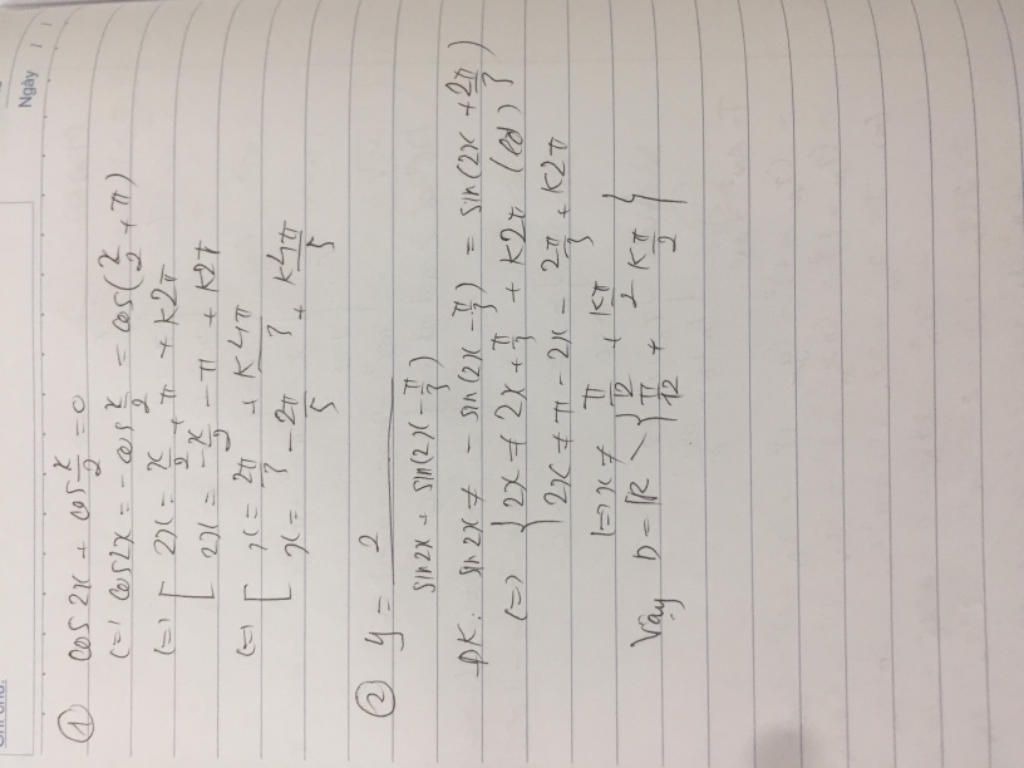 Ngày
① cos 2x + cos x/2 = 0
(=) cos2x = - cos x/2 = cos(x/2 + π)
(=) [ 2x = x/2 + π + k2π
2x = -x/2 - π + k2π
(=) [ x = 2π/3 + k4π/3
x = -2π/5 + k4π/5
② y = 2/(sin2x + sin(2x - π/3))
ĐK: sin 2x ≠ - sin(2x - π/3) = sin(2x + 2π/3)
(=) { 2x ≠ 2x + π/3 + k2π (lđ)
2x ≠ π - 2x - 2π/3 + k2π
(=) x ≠ π/12 + kπ/2
Vậy D = R \ { π/12 + kπ/2 }